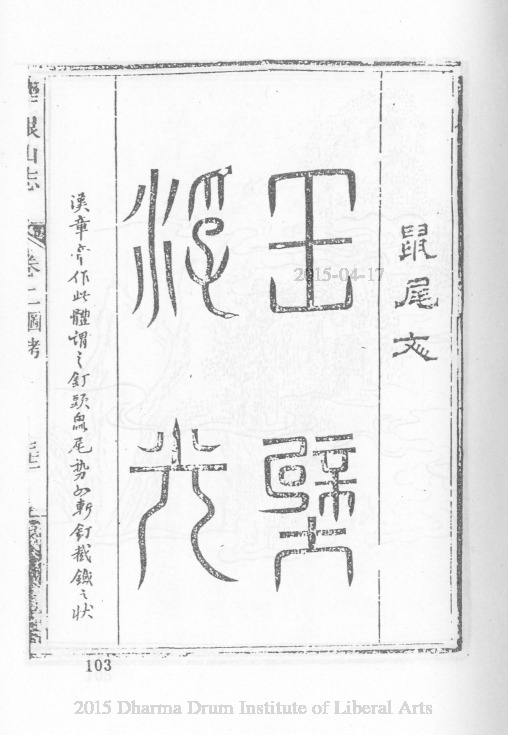 鼠尾文
浮光
漢章帝作此體謂之釘頭鼠尾勢如斬釘截鐵之狀
山志 卷二圖考
103
2015-04-17
2015 Dharma Drum Institute of Liberal Arts